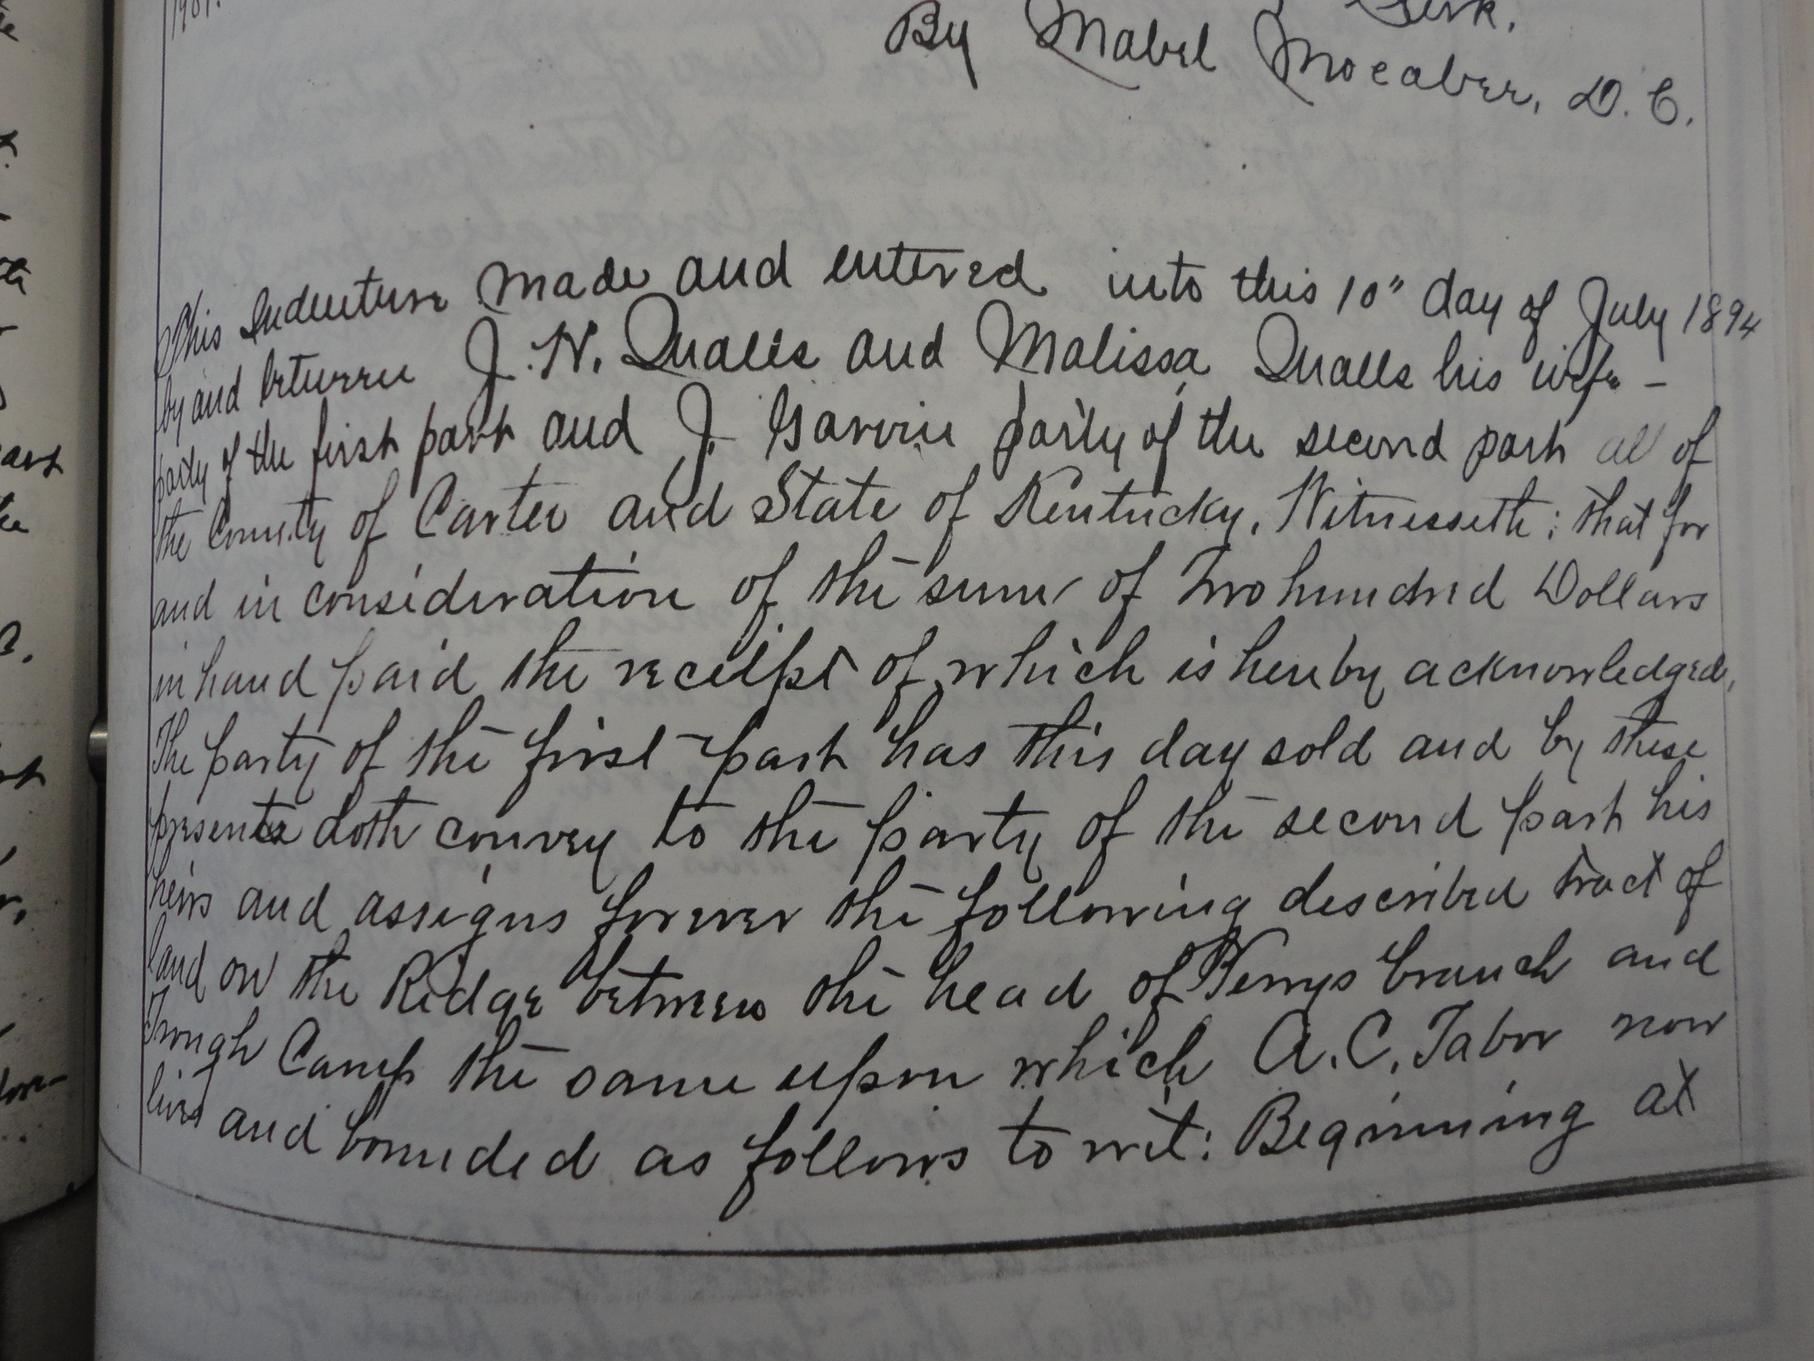 Clerk.
By Mabel Mocabee, D.C.
This Indenture made and entered into this 10" day of July 1894
by and between J. N. Qualls and Malissa Qualls his wife -
party of the first part and J. Garvin party of the second part all of
the County of Carter and State of Kentucky, Witnesseth; that for
and in consideration of the sum of Two hundred Dollars
in hand paid the receipt of which is hereby acknowledged,
The party of the first part has this day sold and by these
presents doth convey to the party of the second part his
heirs and assigns forever the following described tract of
land on the Ridge between the head of Perrys branch and
Trough Camp the same upon which A. C. Tabor now
lives and bounded as follows to wit: Beginning at